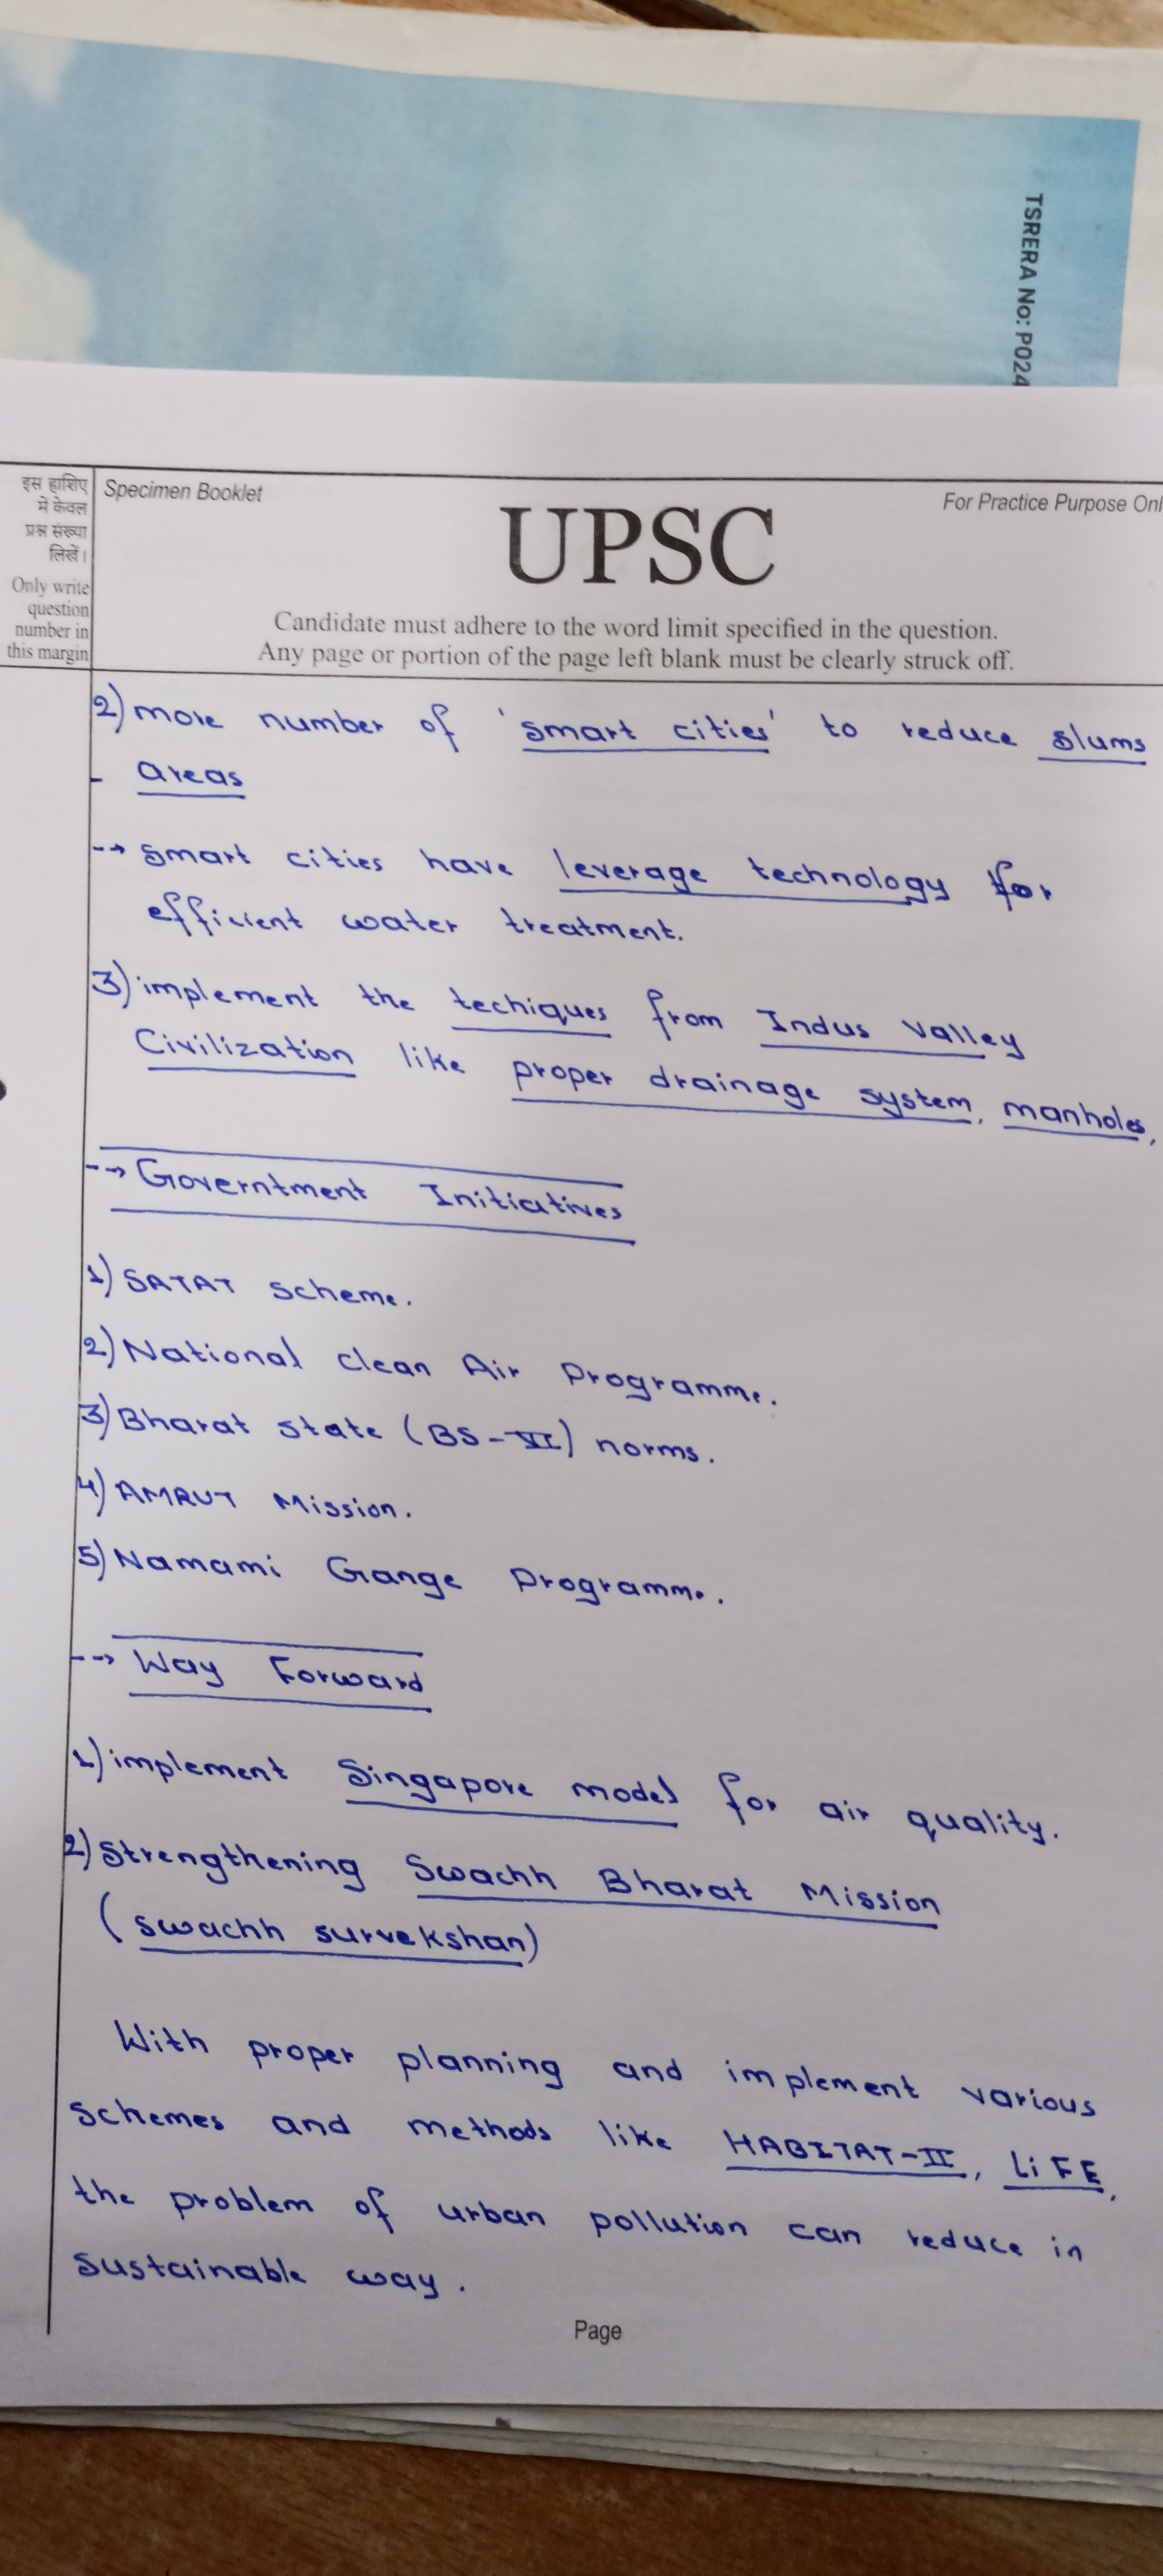 TSRERA No: P024
इस हाशिए
में केवल
प्रश्न संख्या
लिखें।
Only write
question
number in
this margin
Specimen Booklet
For Practice Purpose Onl
UPSC
Candidate must adhere to the word limit specified in the question.
Any page or portion of the page left blank must be clearly struck off.
2) more number of 'smart cities' to reduce slums
- areas
--> smart cities have leverage technology for
efficient water treatment.
3) implement the techiques from Indus valley
Civilization like proper drainage system, manholes,
--> Governtment Initiatives
1) SATAT scheme.
2) National clean Air Programme.
3) Bharat state (BS-VI) norms.
4) AMRUT Mission.
5) Namami Gange Programme.
--> Way Forward
1) implement Singapore model for air quality.
2) Strengthening Swachh Bharat Mission
(swachh survekshan)
With proper planning and implement various
schemes and methods like HABITAT-II, LiFE,
the problem of urban pollution can reduce in
sustainable way.
Page